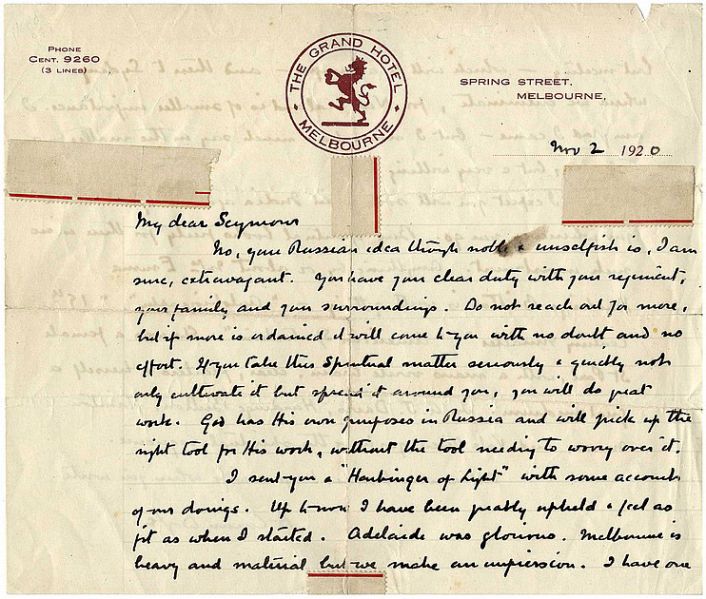 PHONE
CENT. 9260
(3 LINES)
THE GRAND HOTEL
MELBOURNE
SPRING STREET,
MELBOURNE,
Nov 2 1920
My dear Seymour
No, your Russian idea though noble & unselfish is, I am
sure, extravagant. You have your clear duty with your regiment,
your family and your surroundings. Do not reach out for more,
but if more is ordained it will come to you with no doubt and no
effort. If you take this Spiritual matter seriously & quietly not
only cultivate it but spread it around you, you will do great
work. God has His own purposes in Russia and will pick up the
right tool for His work, without the tool needing to worry over it.
I sent you a "Harbinger of Light" with some account
of our doings. Up to now I have been greatly upheld & feel as
fit as when I started. Adelaide was glorious. Melbourne is
heavy and material but we make an impression. I have one